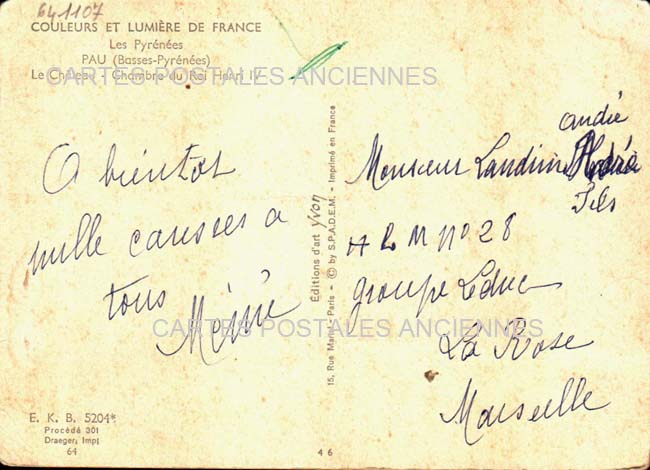 641107
COULEURS ET LUMIÈRE DE FRANCE
Les Pyrénées
PAU (Basses-Pyrénées)
Le Château - Chambre du Roi Henri IV
CARTES POSTALES ANCIENNES
A bientot
mille caresses a
tous
Mémé
Editions d'art yvon
15, Rue Martel - Paris - © by S.P.A.D.E.M. - Imprimé en France
andré
Monsieur Landini
Fils
H L M N° 28
groupe Leduc
La Rose
Marseille
CARTES POSTALES ANCIENNES
E. K. B. 5204*
Procédé 301
Draeger, Imp!
64
46